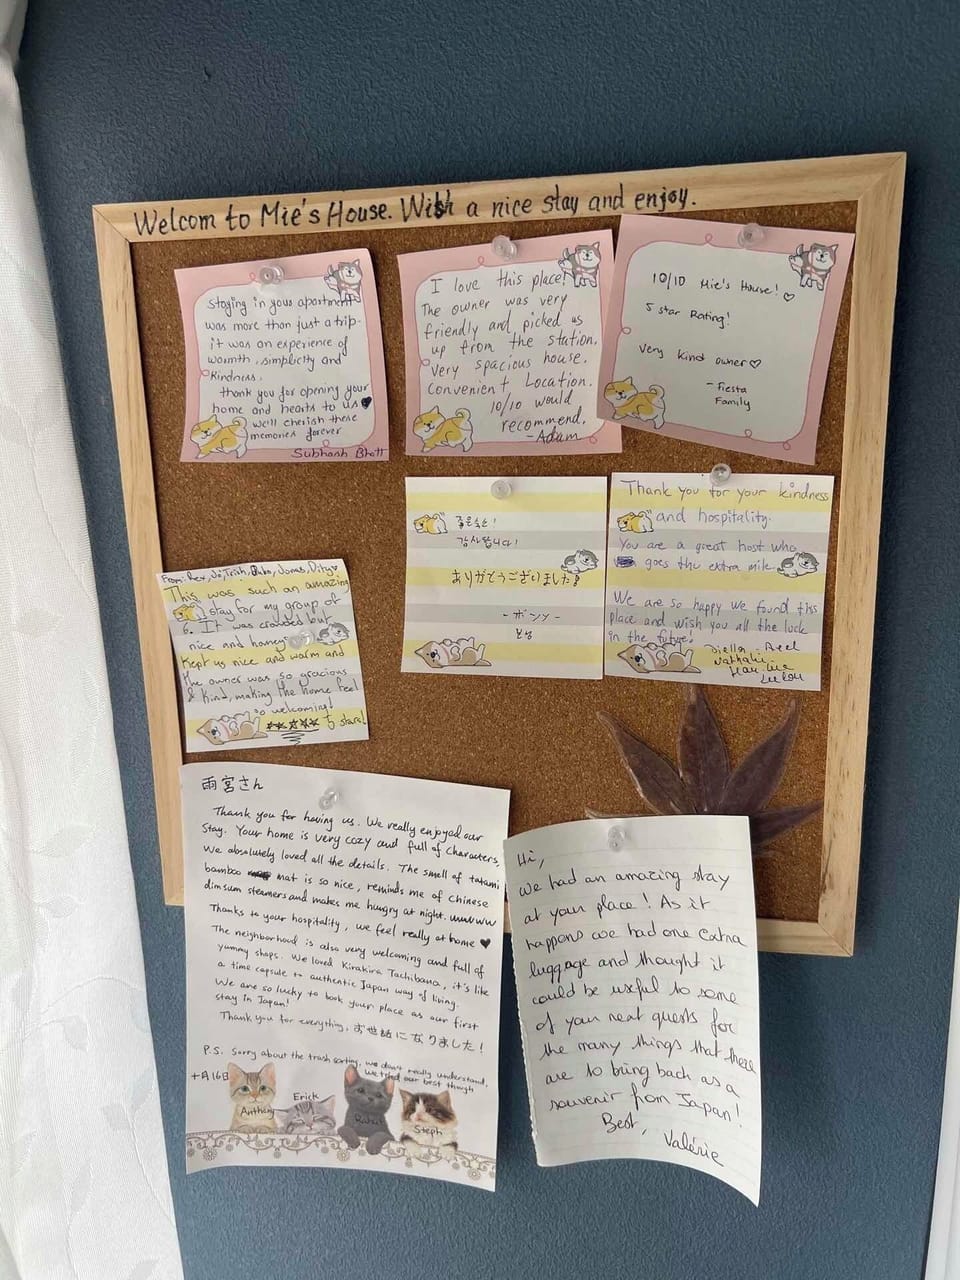 Welcom to Mie's House. Wish a nice stay and enjoy.
Staying in your apartment
was more than just a trip.
it was an experience of
warmth, simplicity and
Kindness.
thank you for opening your
home and hearts to us
we'll cherish these
memories forever
Subhash Bhatt
I love this place!
The owner was very
friendly and picked us
up from the station.
Very spacious house.
Convenient Location.
10/10 would
recommend.
- Adam
10/10 Mie's House! ♡
5 star Rating!
Very Kind owner ♡
- Fiesta
Family
감사합니다!
ありがとうございました!
Thank you for your kindness
and hospitality.
You are a great host who
goes the extra mile.
We are so happy we found this
place and wish you all the luck
in the future!
From: Rex, Jo, Trish, Jonas, Dity
This was such an amazing
stay for my group of
6. It was crowded but
nice and
Kept us nice and warm and
the owner was so gracious
& kind, making the home feel
so welcoming!
5 stars!
雨宮さん
Thank you for having us. We really enjoyed our
stay. Your home is very cozy and full of characters,
We absolutely loved all the details. The smell of tatami
bamboo mat is so nice, reminds me of chinese
dim sum steamers and makes me hungry at night. wwwww
Thanks to your hospitality, we feel really at home ♥
The neighborhood is also very welcoming and full of
yummy shops. We loved Kirakira Tachibana, it's like
a time capsule to authentic Japan way of living.
We are so lucky to book your place as our first
stay in Japan!
Thank you for everything, お世話になりました!
P.S. Sorry about the trash sorting, we don't really understand,
we tried our best though
十月16日
Anthony
Erick
Steph
Hi,
We had an amazing stay
at your place! As it
happens we had one extra
luggage and thought it
could be useful to some
of your next guests for
the many things that there
are to bring back as a
souvenir from Japan!
Best,
Valérie